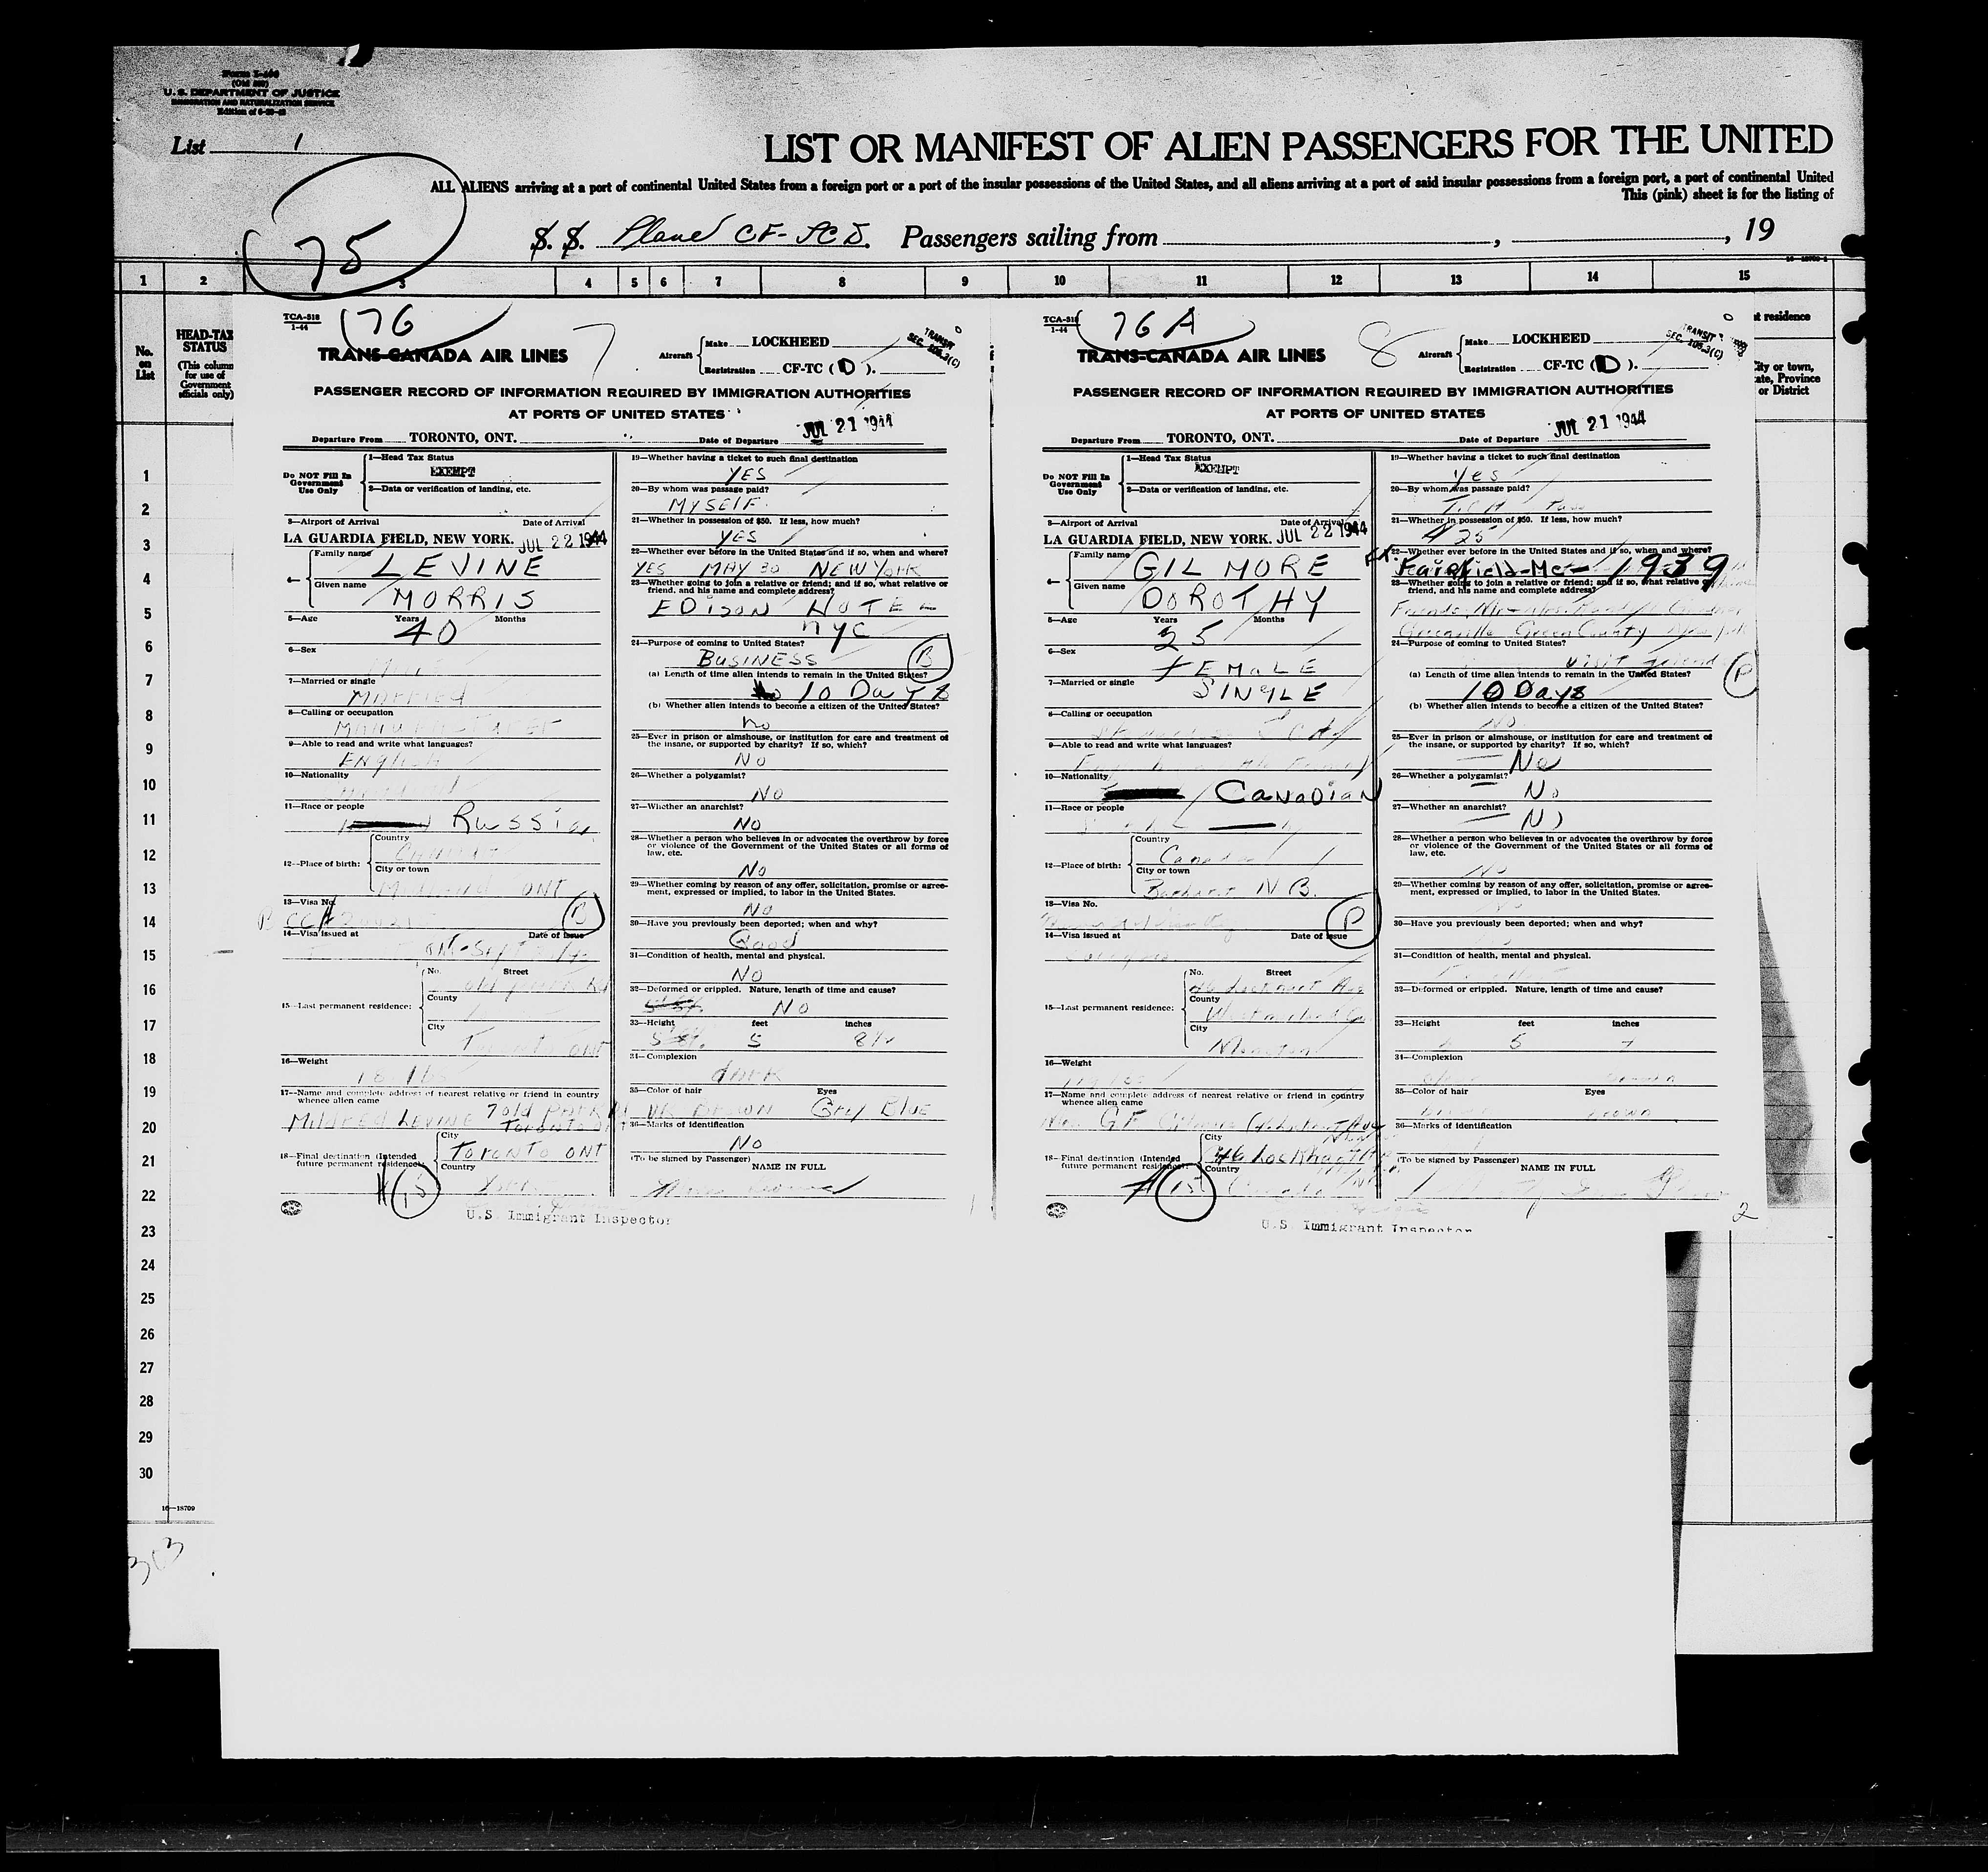 Form I-466
U. S. DEPARTMENT OF JUSTICE
IMMIGRATION AND NATURALIZATION SERVICE
List 1
LIST OR MANIFEST OF ALIEN PASSENGERS FOR THE UNITED
ALL ALIENS arriving at a port of continental United States from a foreign port or a port of the insular possessions of the United States, and all aliens arriving at a port of said insular possessions from a foreign port, a port of continental United
This (pink) sheet is for the listing of
75
S. S. Plane CF-TCD. Passengers sailing from , , 19
1 2 3 4 5 6 7 8 9 10 11 12 13 14 15
No. on List
HEAD-TAX STATUS
(This column for use of Government officials only)
t residence
City or town, ate, Province or District
1
2
3
4
5
6
7
8
9
10
11
12
13
14
15
16
17
18
19
20
21
22
23
24
25
26
27
28
29
30
16—18709
303
TCA-518
1-44
76
7
TRANS-CANADA AIR LINES
Aircraft Make LOCKHEED
Registration CF-TC (D).
TRANSIT
SEC. 105.3(C)
PASSENGER RECORD OF INFORMATION REQUIRED BY IMMIGRATION AUTHORITIES
AT PORTS OF UNITED STATES
Departure From TORONTO, ONT. Date of Departure JUL 21 1944
Do NOT Fill In Government Use Only
1—Head Tax Status
EXEMPT
2—Data or verification of landing, etc.
3—Airport of Arrival Date of Arrival
LA GUARDIA FIELD, NEW YORK. JUL 22 1944
4— Family name LEVINE
Given name MORRIS
5—Age Years 40 Months
6—Sex
7—Married or single
MARRIED
8—Calling or occupation
9—Able to read and write what languages?
English
10—Nationality
11—Race or people
Russian
12—Place of birth: Country
City or town
ONT
13—Visa No.
B
14—Visa issued at Date of Issue
15—Last permanent residence: No. Street
County
City
Toronto ONT
16—Weight
17—Name and complete address of nearest relative or friend in country
whence alien came
MILDRED LEVINE 7 old
Toronto ONT
18—Final destination (Intended
future permanent residence): City
TORONTO ONT
Country
15
U.S. Immigrant Inspector
19—Whether having a ticket to such final destination
YES
20—By whom was passage paid?
MYSELF
21—Whether in possession of $50. If less, how much?
YES
22—Whether ever before in the United States and if so, when and where?
YES MAY 30 NEW YORK
23—Whether going to join a relative or friend; and if so, what relative or
friend, and his name and complete address?
EDISON HOTEL
NYC
24—Purpose of coming to United States?
BUSINESS B
(a) Length of time alien intends to remain in the United States?
10 Days
(b) Whether alien intends to become a citizen of the United States?
no
25—Ever in prison or almshouse, or institution for care and treatment of
the insane, or supported by charity? If so, which?
No
26—Whether a polygamist?
NO
27—Whether an anarchist?
NO
28—Whether a person who believes in or advocates the overthrow by force
or violence of the Government of the United States or all forms of
law, etc.
No
29—Whether coming by reason of any offer, solicitation, promise or agree-
ment, expressed or implied, to labor in the United States.
NO
30—Have you previously been deported; when and why?
Good
31—Condition of health, mental and physical.
NO
32—Deformed or crippled. Nature, length of time and cause?
NO
33—Height feet inches
5 8½
34—Complexion
dark
35—Color of hair Eyes
BROWN Grey Blue
36—Marks of identification
NO
(To be signed by Passenger)
NAME IN FULL
TCA-518
1-44
76A
8
TRANS-CANADA AIR LINES
Aircraft Make LOCKHEED
Registration CF-TC (D).
TRANSIT
SEC. 105.3(C)
PASSENGER RECORD OF INFORMATION REQUIRED BY IMMIGRATION AUTHORITIES
AT PORTS OF UNITED STATES
Departure From TORONTO, ONT. Date of Departure JUL 21 1944
Do NOT Fill In Government Use Only
1—Head Tax Status
EXEMPT
2—Data or verification of landing, etc.
3—Airport of Arrival Date of Arrival
LA GUARDIA FIELD, NEW YORK. JUL 22 1944
4— Family name GILMORE
Given name DOROTHY
5—Age Years 25 Months
6—Sex
FEMALE
7—Married or single
SINGLE
8—Calling or occupation
9—Able to read and write what languages?
10—Nationality
CANADIAN
11—Race or people
12—Place of birth: Country
Canada
City or town
N B.
13—Visa No.
P
14—Visa issued at Date of Issue
15—Last permanent residence: No. Street
46 Lockhart Ave
County
City
Moncton
16—Weight
17—Name and complete address of nearest relative or friend in country
whence alien came
18—Final destination (Intended
future permanent residence): City
46 Lockhart
Country
Canada
15
U.S. Immigrant Inspector
19—Whether having a ticket to such final destination
Yes
20—By whom was passage paid?
T.C.A Pass
21—Whether in possession of $50. If less, how much?
$25
22—Whether ever before in the United States and if so, when and where?
Ft. Fairfield-Me- 1939
23—Whether going to join a relative or friend; and if so, what relative or
friend, and his name and complete address?
Greenville Green County New York
24—Purpose of coming to United States?
visit friend P
(a) Length of time alien intends to remain in the United States?
10 Days
(b) Whether alien intends to become a citizen of the United States?
No
25—Ever in prison or almshouse, or institution for care and treatment of
the insane, or supported by charity? If so, which?
No
26—Whether a polygamist?
No
27—Whether an anarchist?
No
28—Whether a person who believes in or advocates the overthrow by force
or violence of the Government of the United States or all forms of
law, etc.
No
29—Whether coming by reason of any offer, solicitation, promise or agree-
ment, expressed or implied, to labor in the United States.
30—Have you previously been deported; when and why?
31—Condition of health, mental and physical.
32—Deformed or crippled. Nature, length of time and cause?
33—Height feet inches
5 7
34—Complexion
35—Color of hair Eyes
brown
36—Marks of identification
(To be signed by Passenger)
NAME IN FULL
2